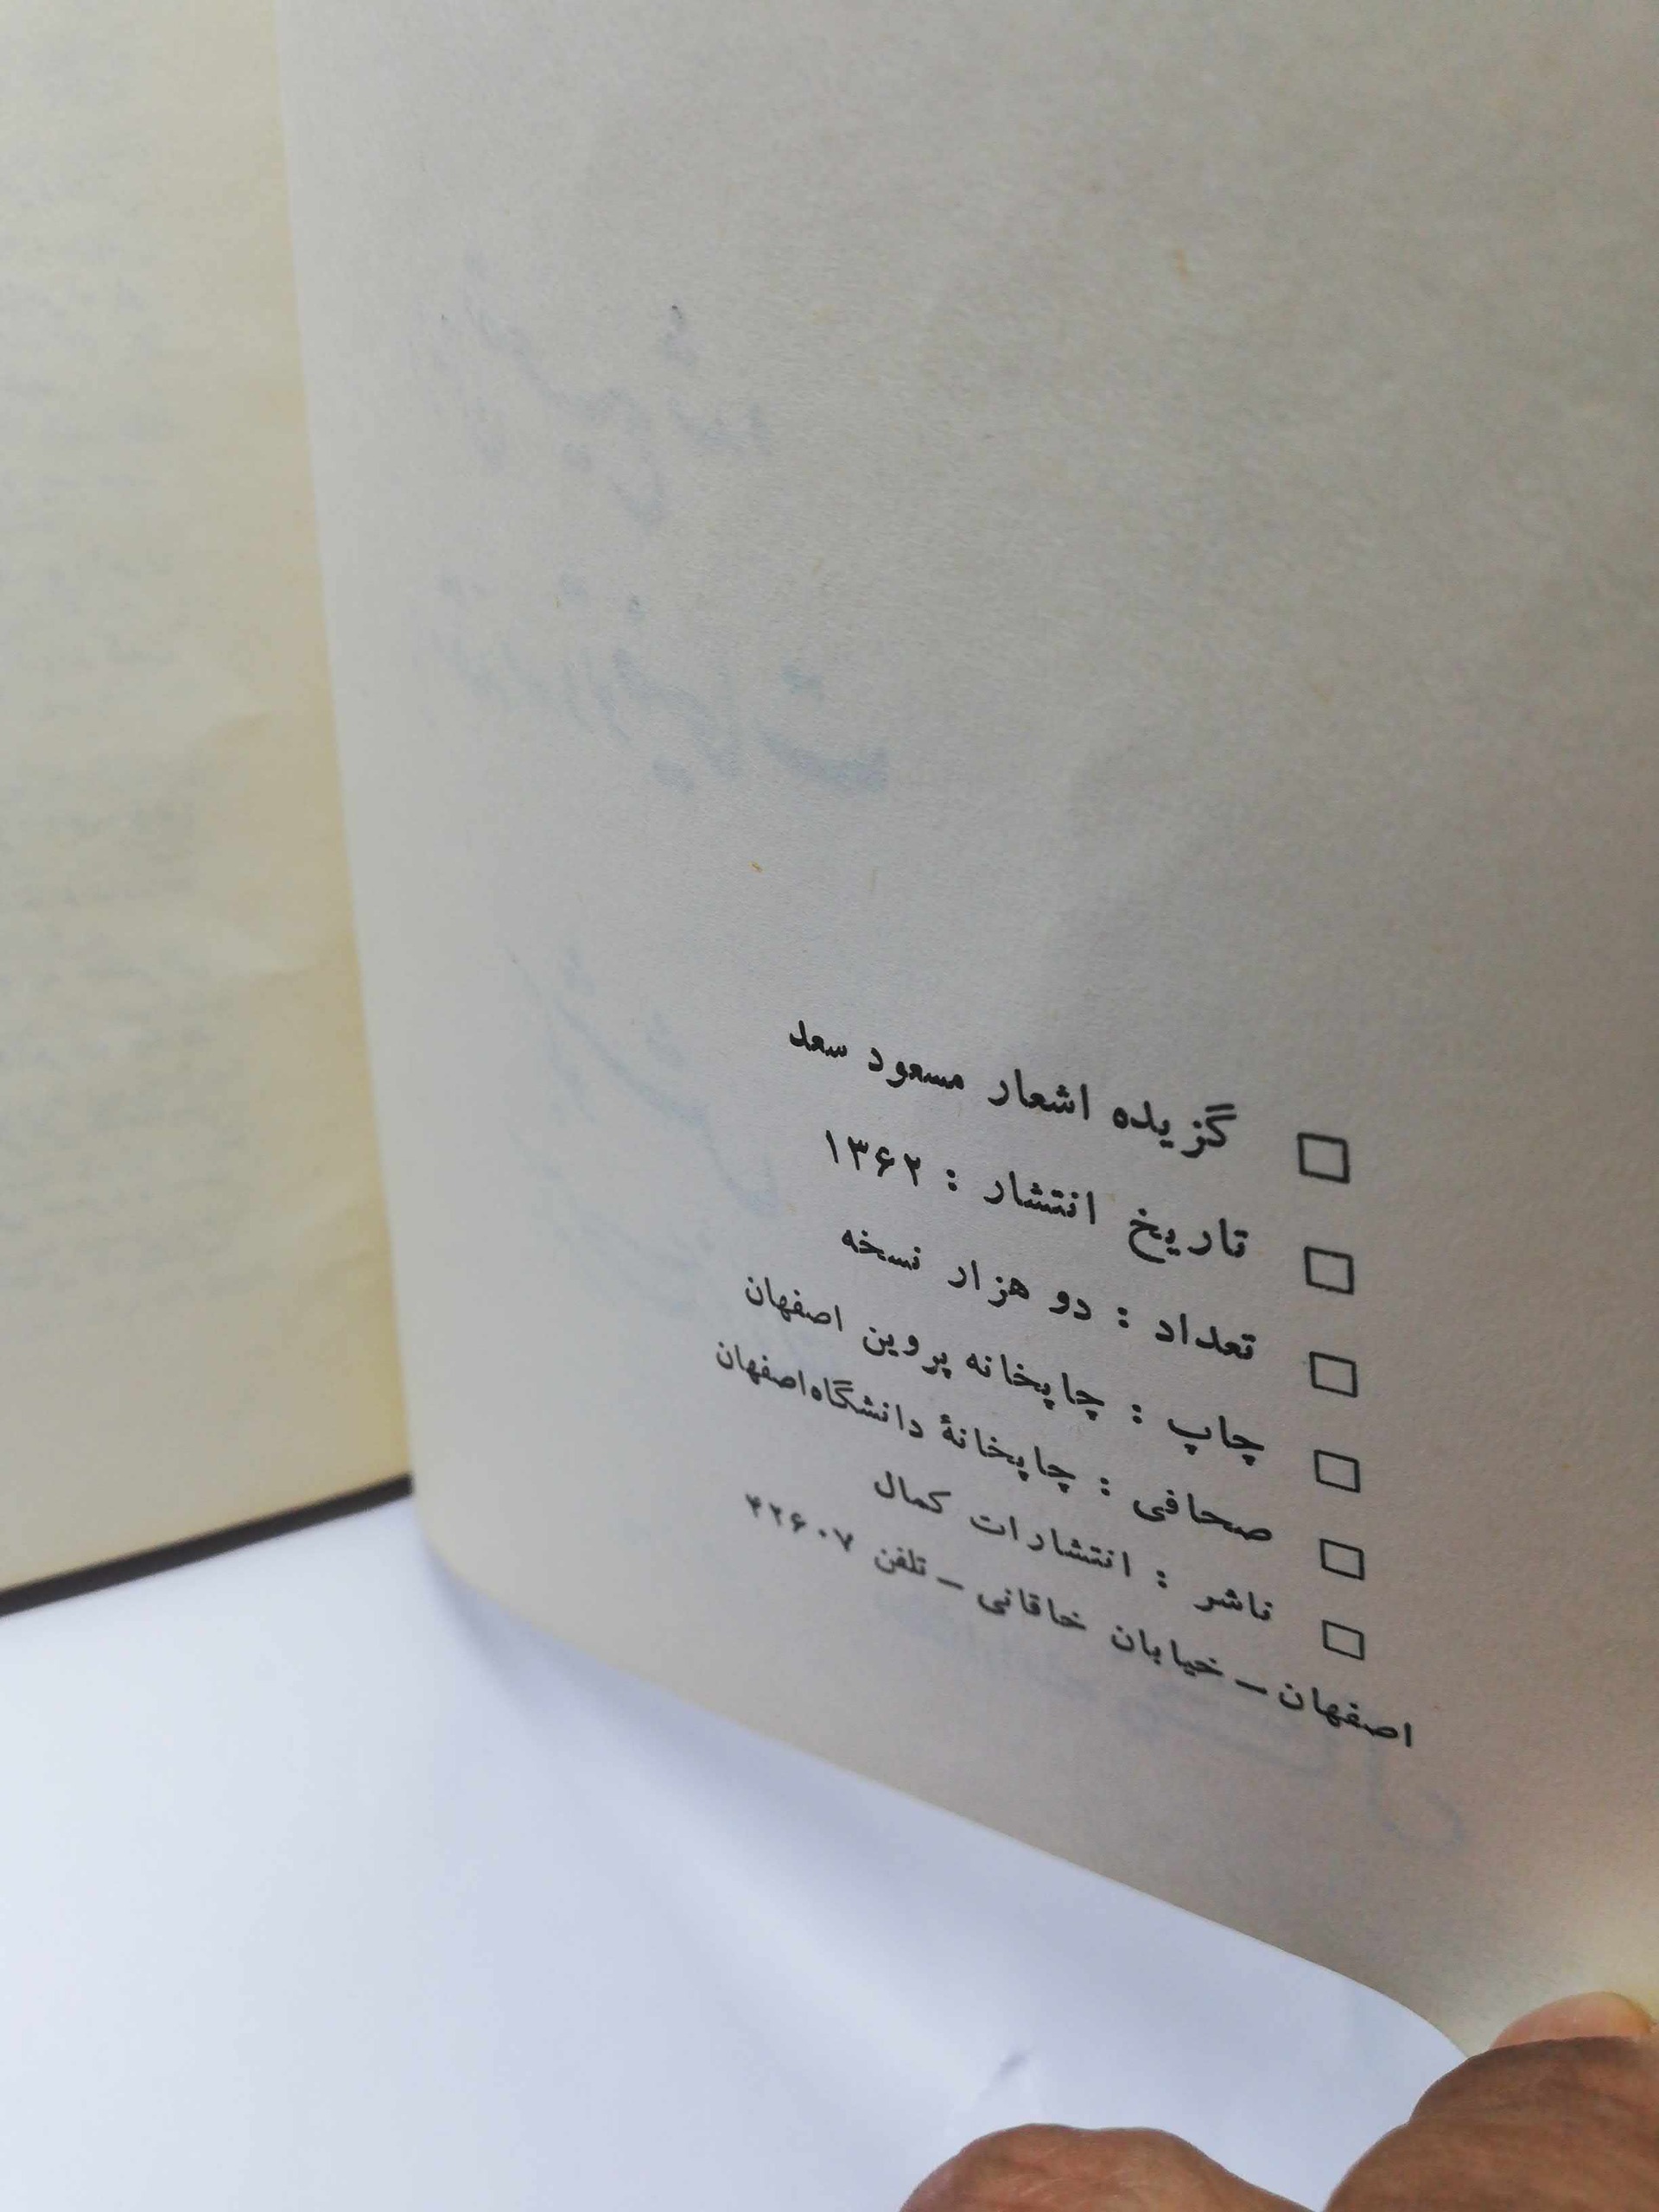 □ گزیده اشعار مسعود سعد
□ تاریخ انتشار : ۱۳۶۲
□ تعداد : دو هزار نسخه
□ چاپ : چاپخانه پروین اصفهان
□ صحافی : چاپخانهٔ دانشگاه اصفهان
□ ناشر : انتشارات کمال
اصفهان ـ خیابان خاقانی ـ تلفن ۴۲۶۰۷